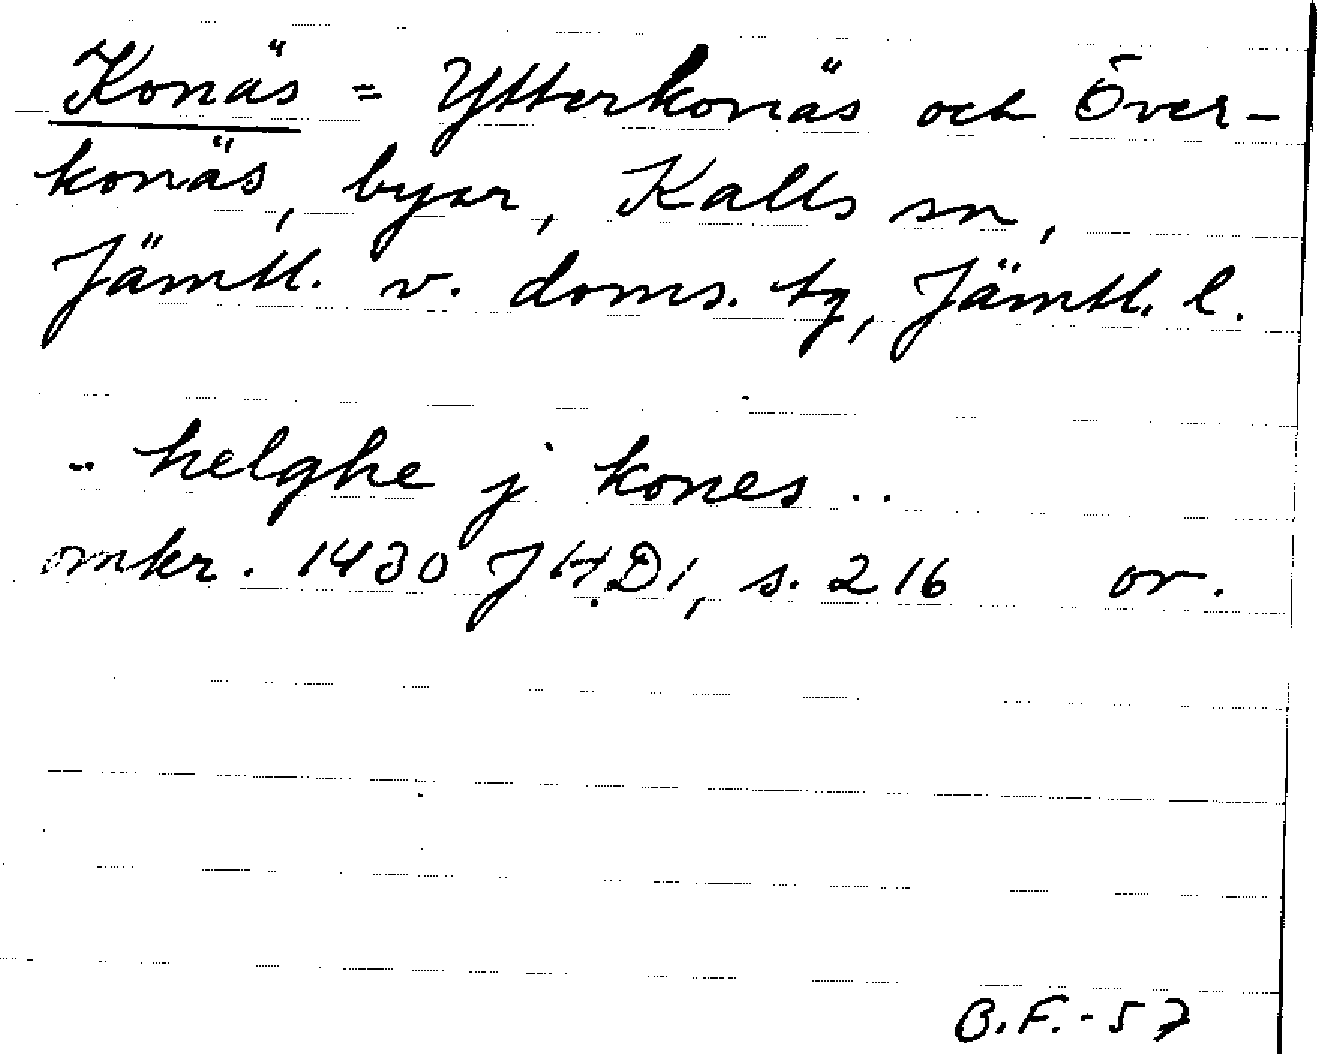 Konäs = Ytterkonäs och Över-
konäs, byar, Kalls sn,
Jämtl. v. doms. tg, Jämtl. l.
.. helghe j kones ..
omkr. 1430 JH.D1, s. 216 or.
B.F.-57